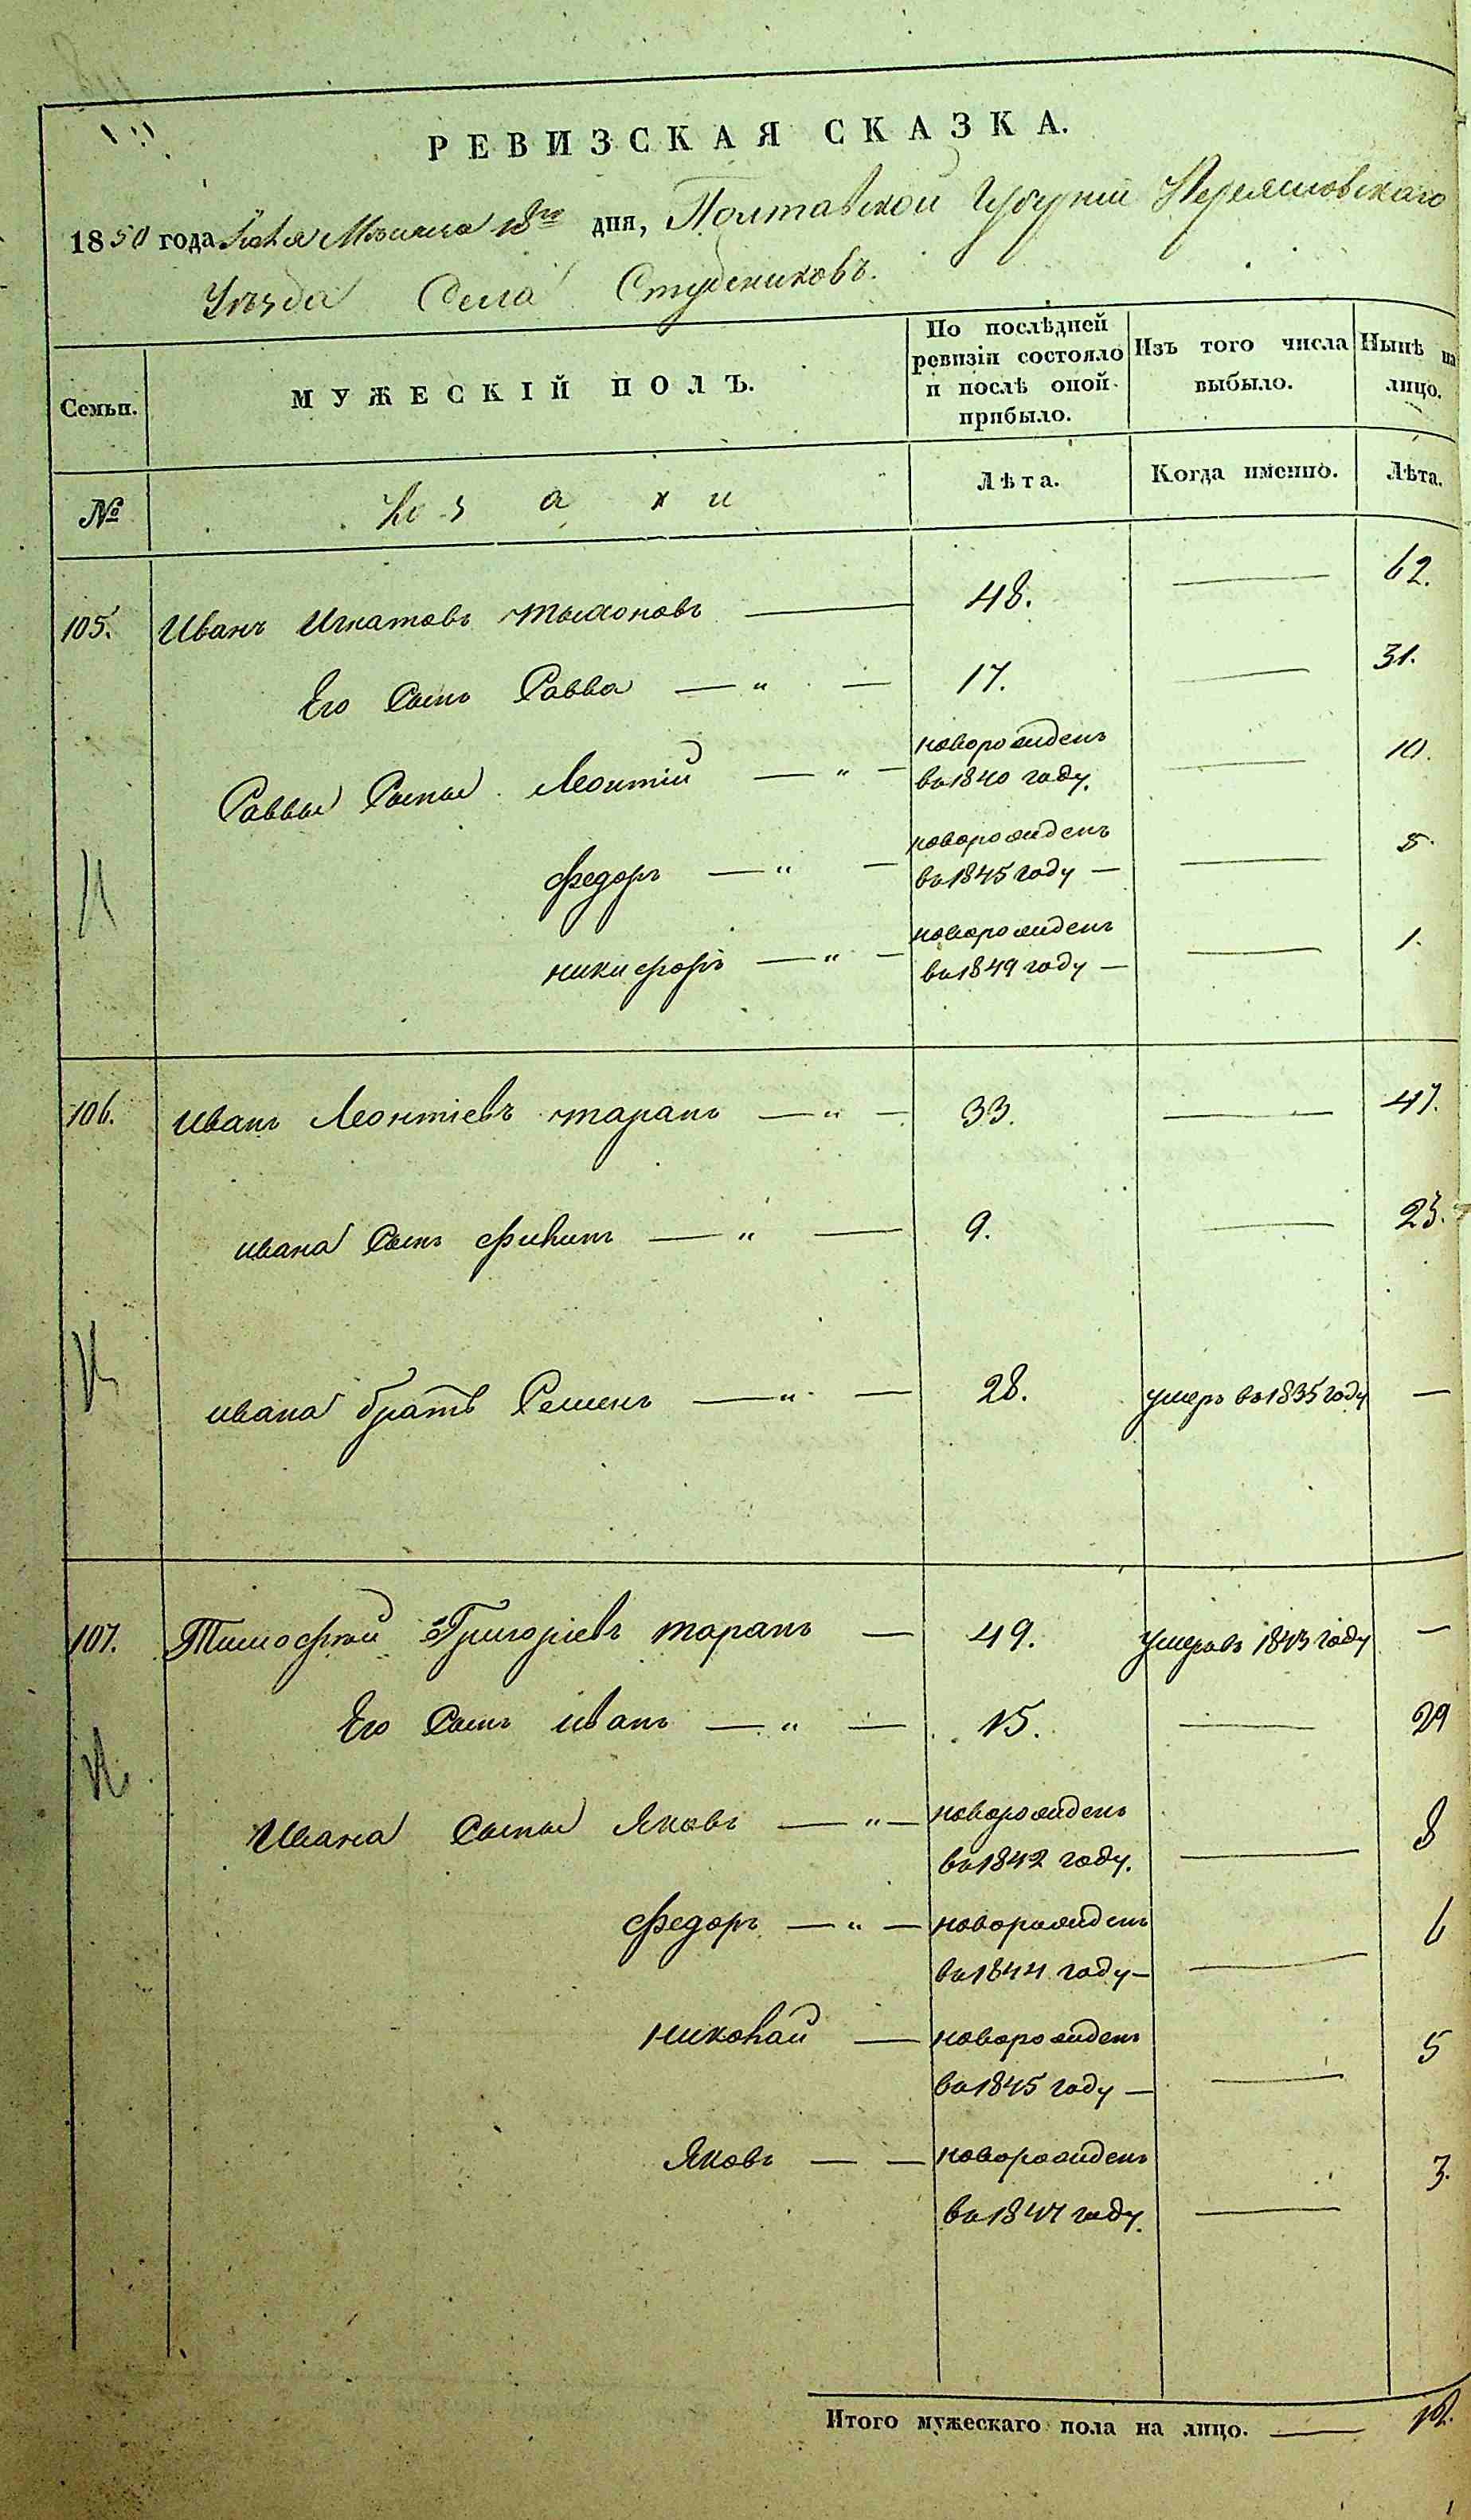 РЕВИЗСКАЯ СКАЗКА.
1850 года Июля Месяца 18го дня, Полтавской Губерніи Переяславскаго
Уѣзда Села Студениковъ.
Семьи.
МУЖЕСКІЙ ПОЛЪ.
По послѣдней ревизіи состояло и послѣ оной прибыло.
Изъ того числа выбыло.
Нынѣ на лицо.
№
Козаки
Лѣта.
Когда именно.
Лѣта.
105. Иванъ Игнатовъ тыхоновъ — 48. — 62.
Его Сынъ Савва — „ — 17. — 31.
Саввы Сыны Леонтій — „ — новорожденъ въ 1840 году. — 10.
Федоръ — „ — новорожденъ въ 1845 году — — 5.
никифоръ — „ — новорожденъ въ 1849 году — — 1.
106. Иванъ Леонтіевъ таранъ — „ — 33. — 47.
ивана Сынъ Филипъ — „ — 9. — 23.
ивана братъ Семенъ — „ — 28. умеръ въ 1835 году —
107. Тимофей Григоріевъ таранъ — 49. умеръ въ 1843 году —
Его Сынъ иванъ — „ — 15. — 29
Ивана Сыны Яковъ — „ — новорожденъ въ 1842 году. — 8
Федоръ — „ — новорожденъ въ 1844 году — — 6
николай — новорожденъ въ 1845 году — — 5
Яковъ — — новорожденъ въ 1847 году. — 3.
Итого мужескаго пола на лицо. —